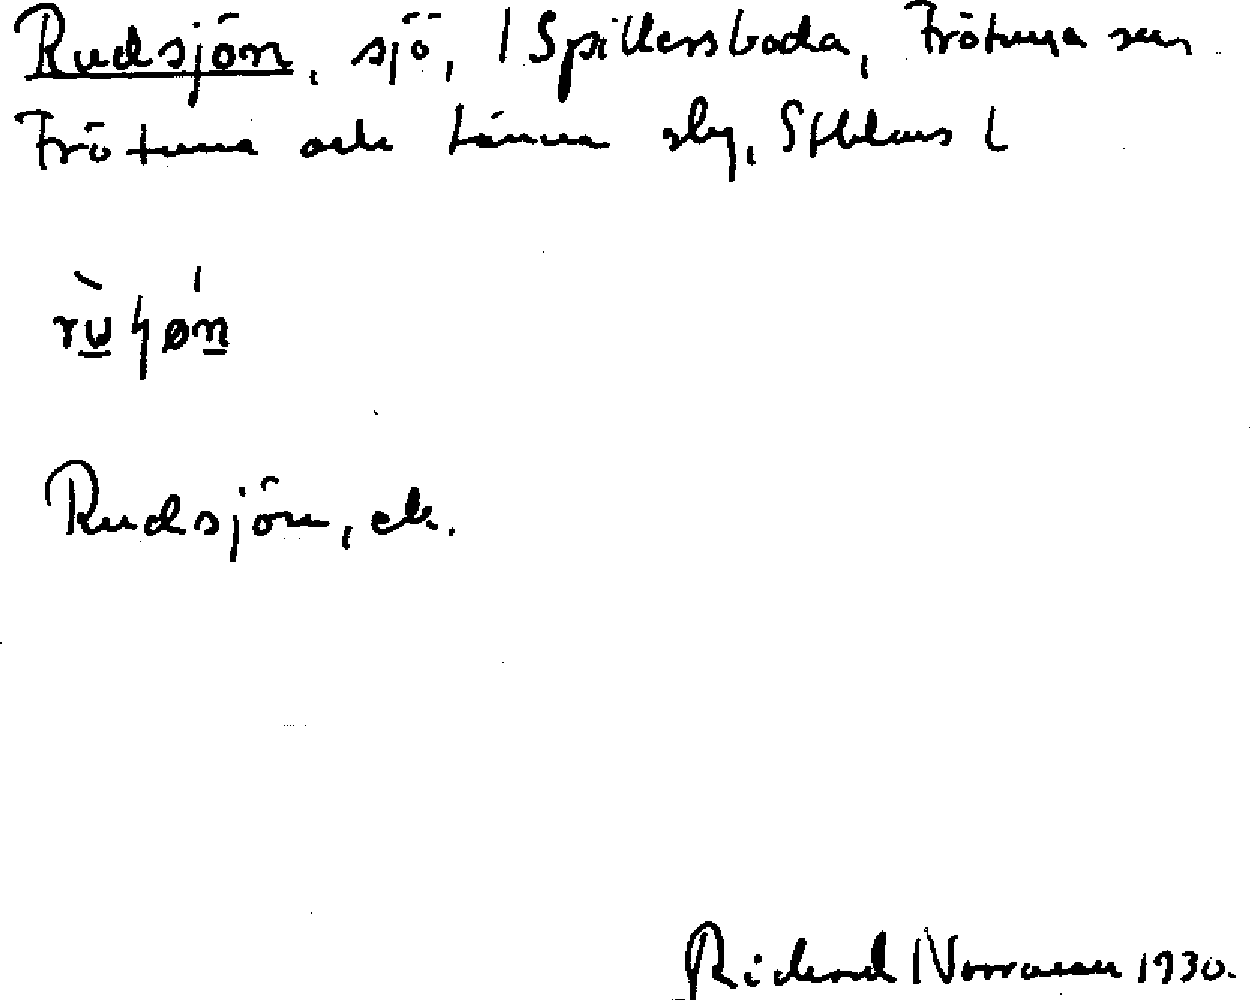 Rudsjön, sjö, / Spillersboda, Frötuna sn.
Frötuna och Länna slg, Sthlms l
Rudsjön, ek.
Richard Norrman 1930.